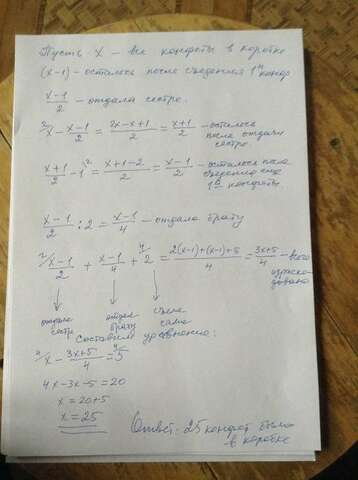 Пусть x – все конфеты в коробке
(x-1) - осталось после съедения 1й конф.
x-1/2 - отдала сестре.
2/x - x-1/2 = 2x-x+1/2 = x+1/2 - осталось после отдачи сестре.
x+1/2 - 1/2 = x+1-2/2 = x-1/2 - осталось после съедения ещё 1й конфеты.
x-1/2 : 2 = x-1/4 - отдала брату
2/x-1/2 + x-1/4 + 4/2 = 2(x-1)+(x-1)+5/4 = 3x+5/4 - всего израсходовано
отдала сестр отдала брату съела сама
Составим уравнение:
4/x - 3x+5/4 = 4/5
4x-3x-5=20
x = 20+5
x = 25
Ответ: 25 конфет было в коробке